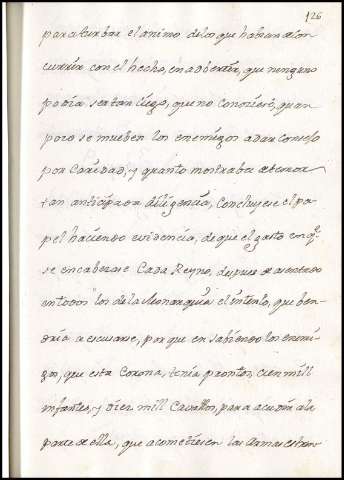 126
para turbar el animo delos que hauian de con
currir con el hecho, en aduertir, que ninguno
podia ser tan ciego, que no conociese, quan
poco se mueben los enemigos a dar consejo
por Caridad, y quanto mostraba
tan anticipada diligencia, Concluyese el pa
pel haciendo euidencia, de que el gasto con q.e
se encabezase Cada Reyno, despues de asentado
en todos los de la Monarquia el intento, que ben-
dria a escusarse, por que en sabiendo los enemi-
gos, que esta Corona, tenia prontos, cien mill
infantes, y diez mill Cavallos, para acudir ala
parte de ella, que acometiesen las Armas estran-